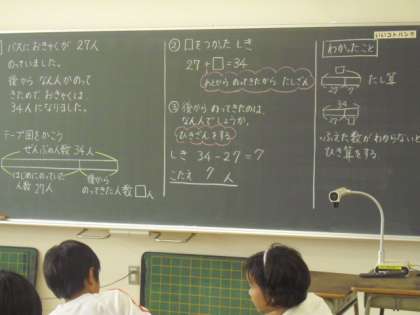 バスにおきゃくが 27人
のっていました。
後から なん人かのって
きたので、おきゃくは
34人になりました。
テープ図をかこう
ぜんぶの人数 34人
はじめにのっていた
人数 27人
後から
のってきた人数 □人
② □をつかった しき
27+□=34
あとから のってきたから たしざん
③ 後から のってきたのは、
なん人でしょうか。
ひきざんをする
しき 34-27=7
こたえ 7人
いいコトバンク
わかったこと
□
27 7
たし算
34
27 □
・ふえた数がわからないと
ひき算をする